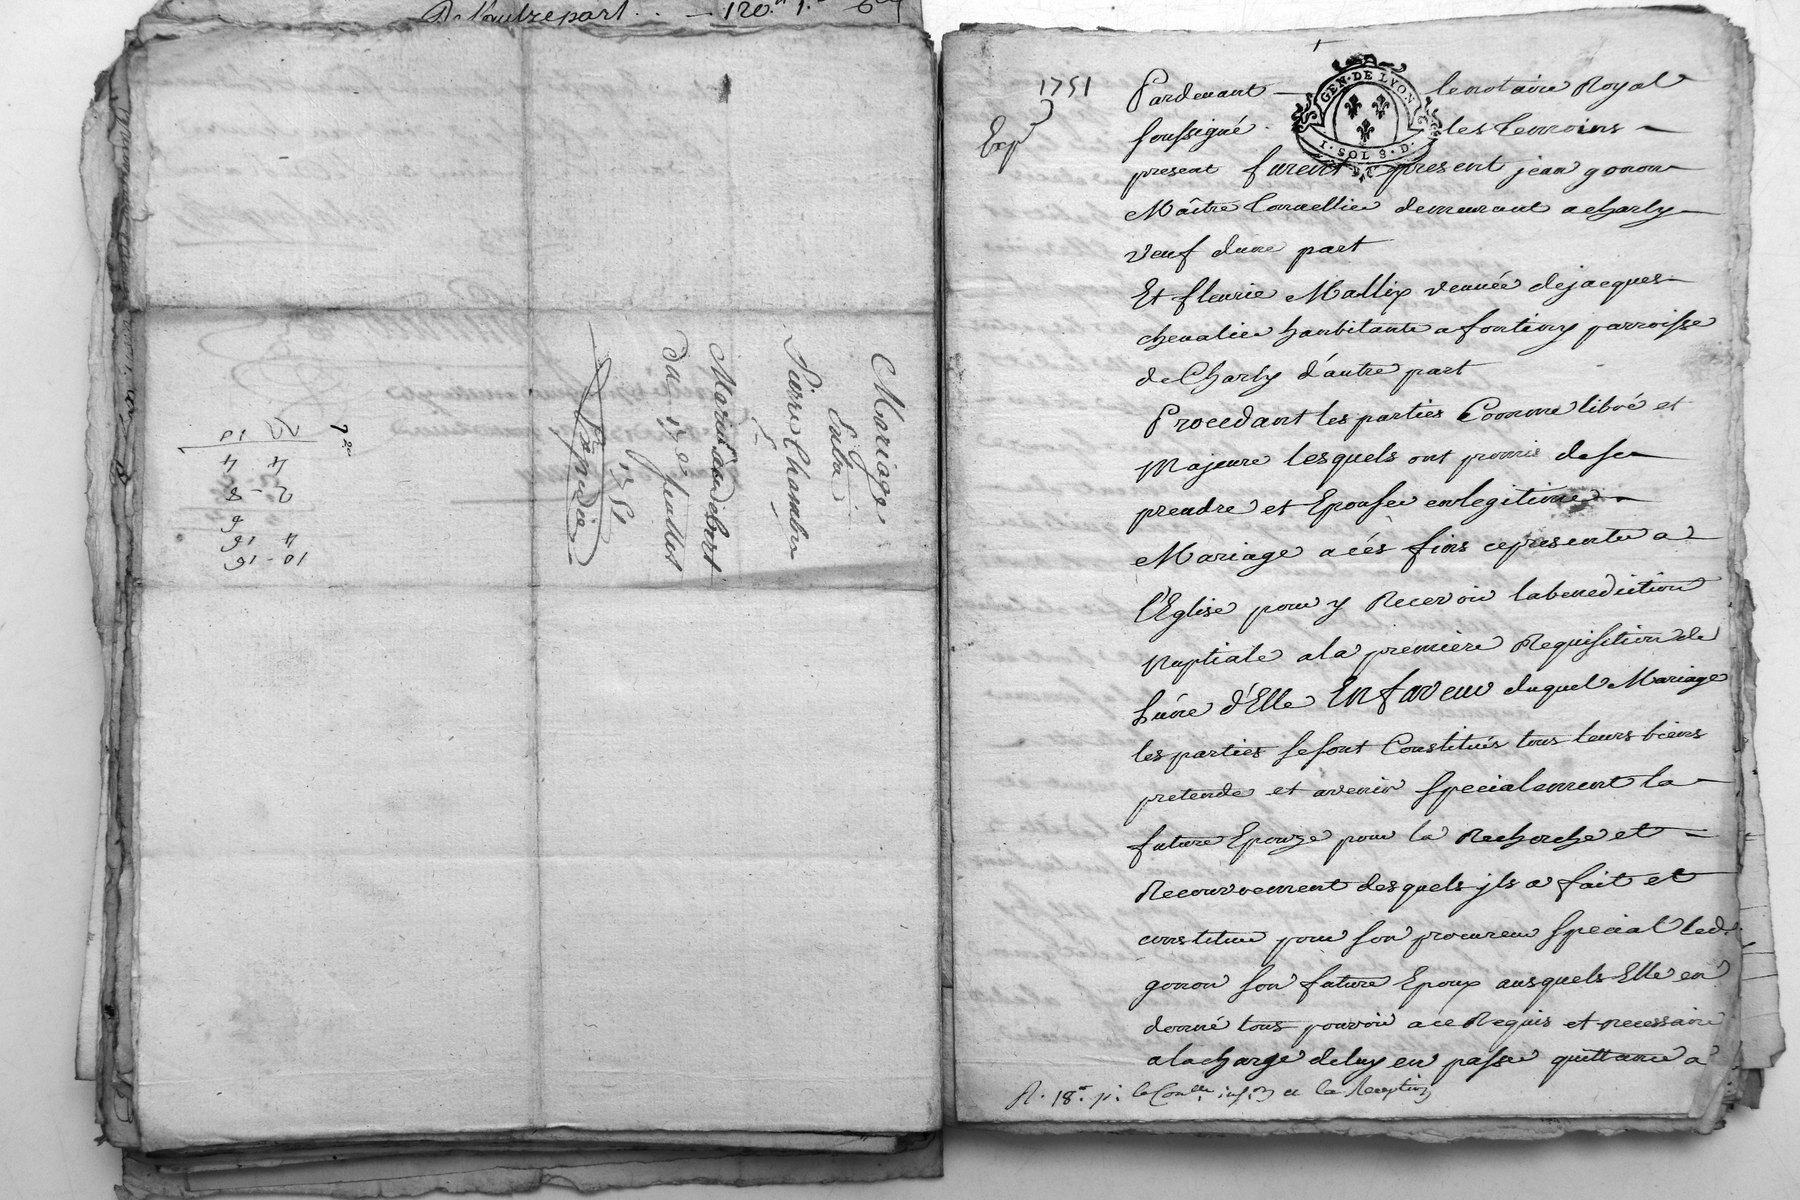 De l'autre part . . — 120.
Mariage
Entre
Pierre Chambe
&
Marie audebert
Du 17e Juillet
1751
Expedié
7 20
10-16
4 16
6
2-8
4 4
20 10
1751
Exp
GEN·DE LYON
1·SOL 8·D·
Pardevant — le notaire Royal
soussigné les temoins —
present furent present jean gonon
Maître tonnellier demeurant a charly —
veuf d'une part
Et fleurie Mallix veuvée de jacques
chevalier habitante a fontiny parroisse
de Charly d'autre part
Procedant les parties Comme libré et
Majeure lesquels ont promis de se
prendre et Epouser en legitime —
Mariage a cés fins ce presenter a
l'Eglise pour y Recevoir la benediction
Nuptiale a la premiere Requisition de
l'une d'Elle En faveur duquel Mariage
les parties se sont Constitués tous leurs biens
pretende et avenir specialement la —
future Epouze pour la Recherche et —
Recouvrement desquels jls a fait et
constitue pour son procureur special led.
gonon son future Epoux ausquels Elle en
donné tous pouvoir a ce Requis et necessaire
a la charge de luy en passer quittance a
R. 18.s p. le Con.lle et la Reception